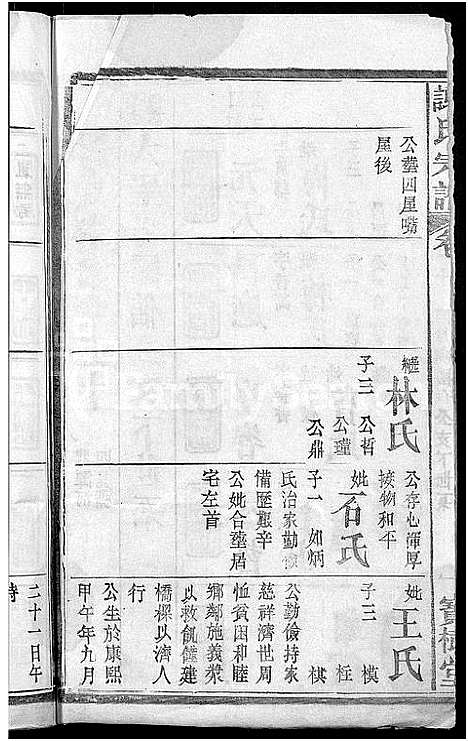 謝氏宗譜
卷
寶樹堂
公塟四屋嘴
屋後
繼林氏
子三 公哲
公瓊
公鼎
公存心渾厚
接物和平
妣石氏
子一 如炳
氏治家勤儉
備歷艱辛
公妣合塟居
宅左首
妣王氏
子三 模
枉
棋
公勤儉持家
慈祥濟世周
恤貧困和睦
鄉鄰施義漿
以救飢饉建
橋樑以濟人
行
公生於康熙
甲午年九月
二十一日午
時